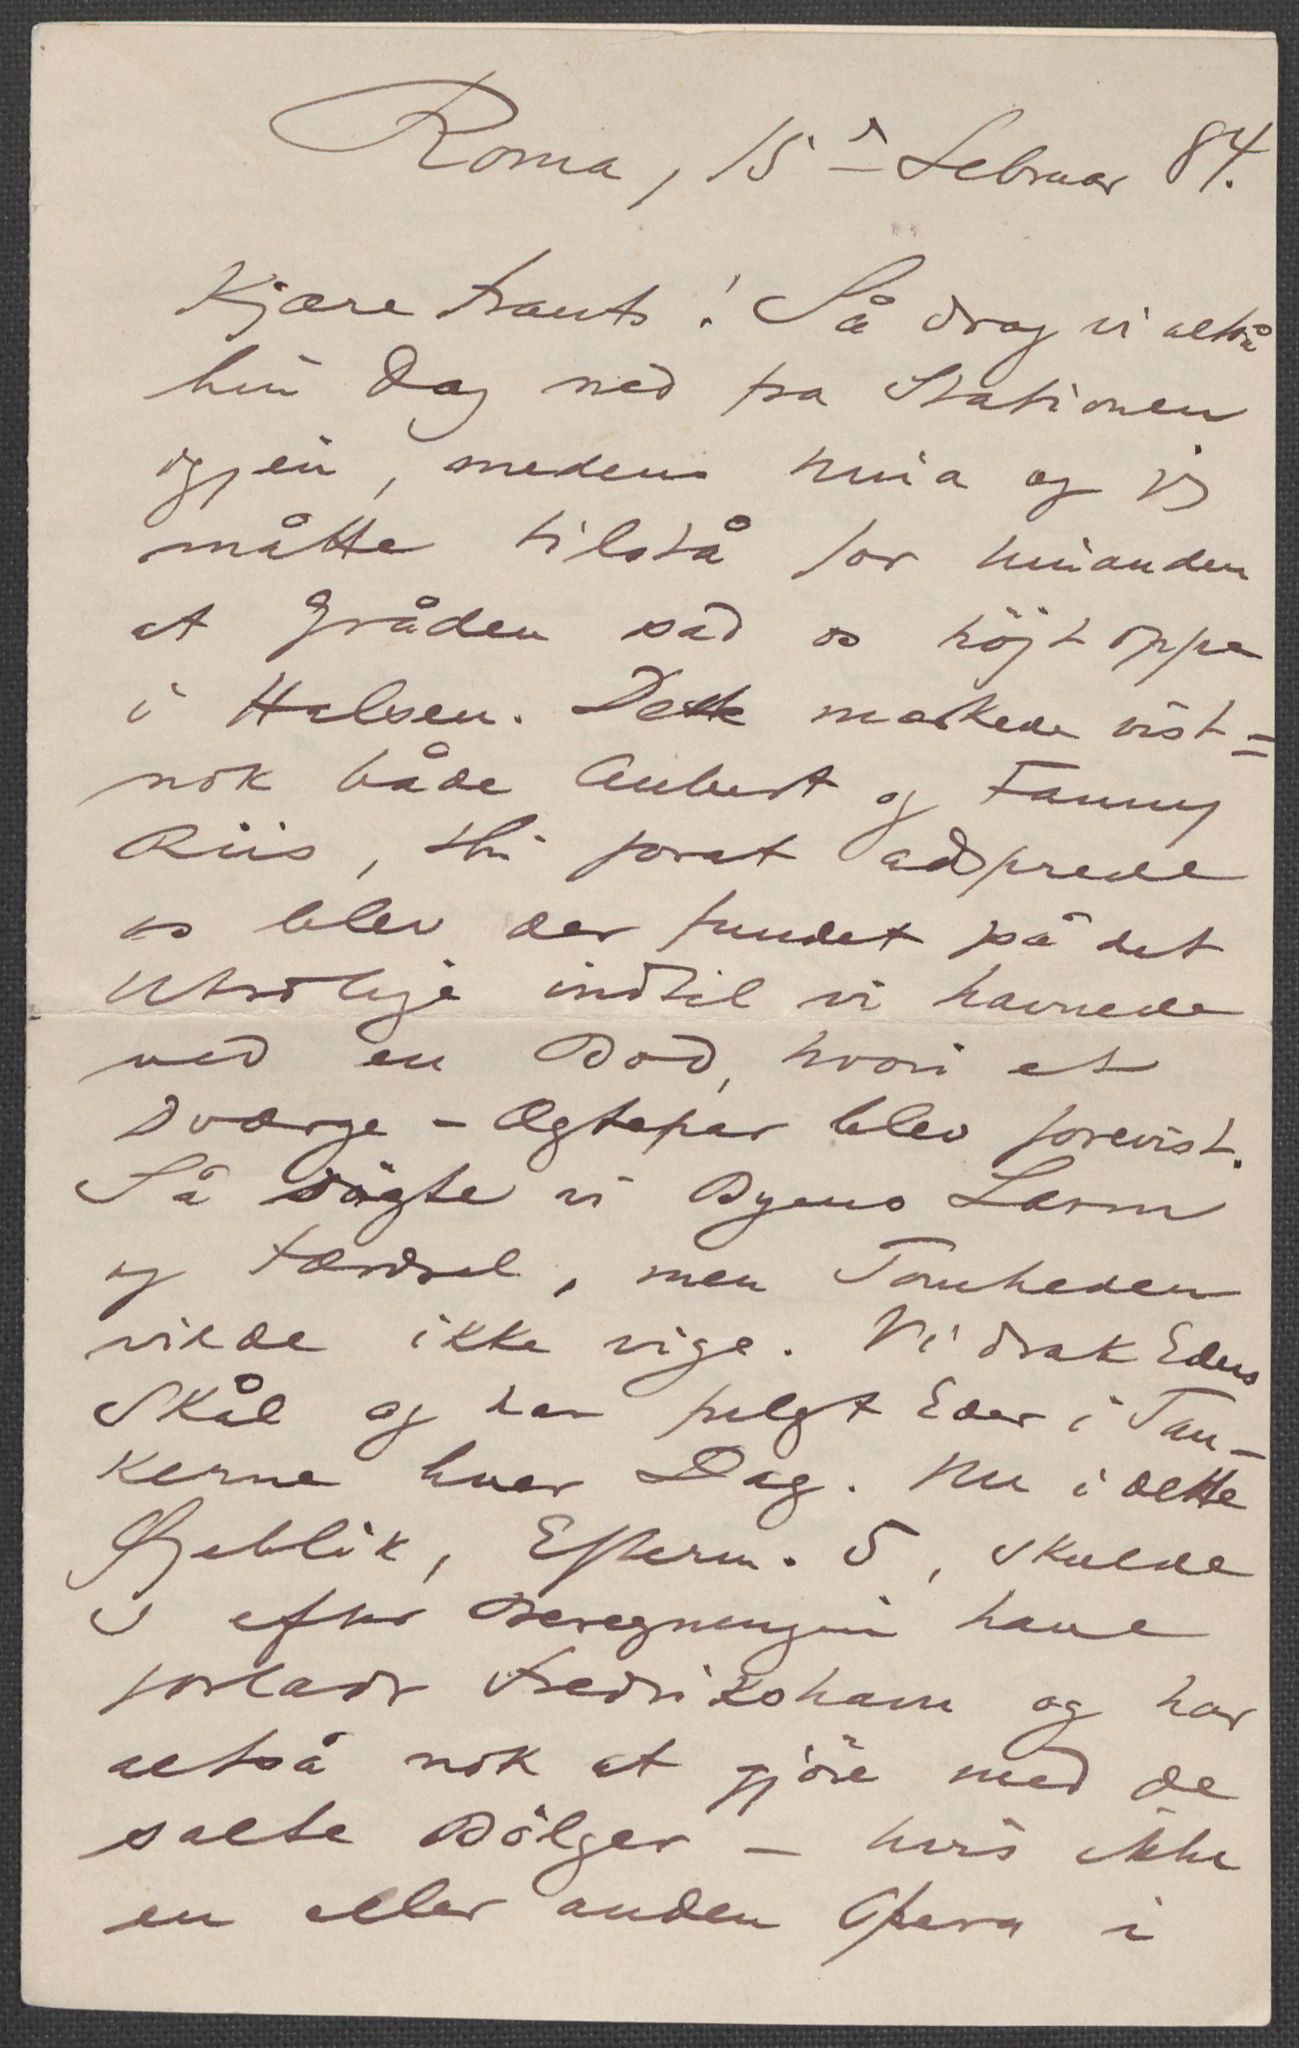 Roma, 15de Februar 84.
Kjære Frants! Så drog vi altså
hin Dag ned fra Stationen
igjen, medens Nina og jeg
måtte tilstå for hinanden
at Gråden sad os höjt oppe
i Halsen. Dette mærkede vist=
nok både Aubert og Fanny
Riis, thi forat adsprede
os blev der fundet på det
utrolige indtil vi havnede
ved en Bod, hvori et
Dværge-Ægtepar blev forevist.
Så sögte vi Byens Larm
og Færdsel, men Tomheden
vilde ikke vige. Vi drak Eders
Skål og har fulgt Eder i Tan-
kerne hver Dag. Nu i dette
Øjeblik, Efterm. 5, skulde
I efter Beregningen have
forladt Fredrikshavn og har
altså nok at gjöre med de
salte Bölger – hvis ikke
en eller anden Opera i